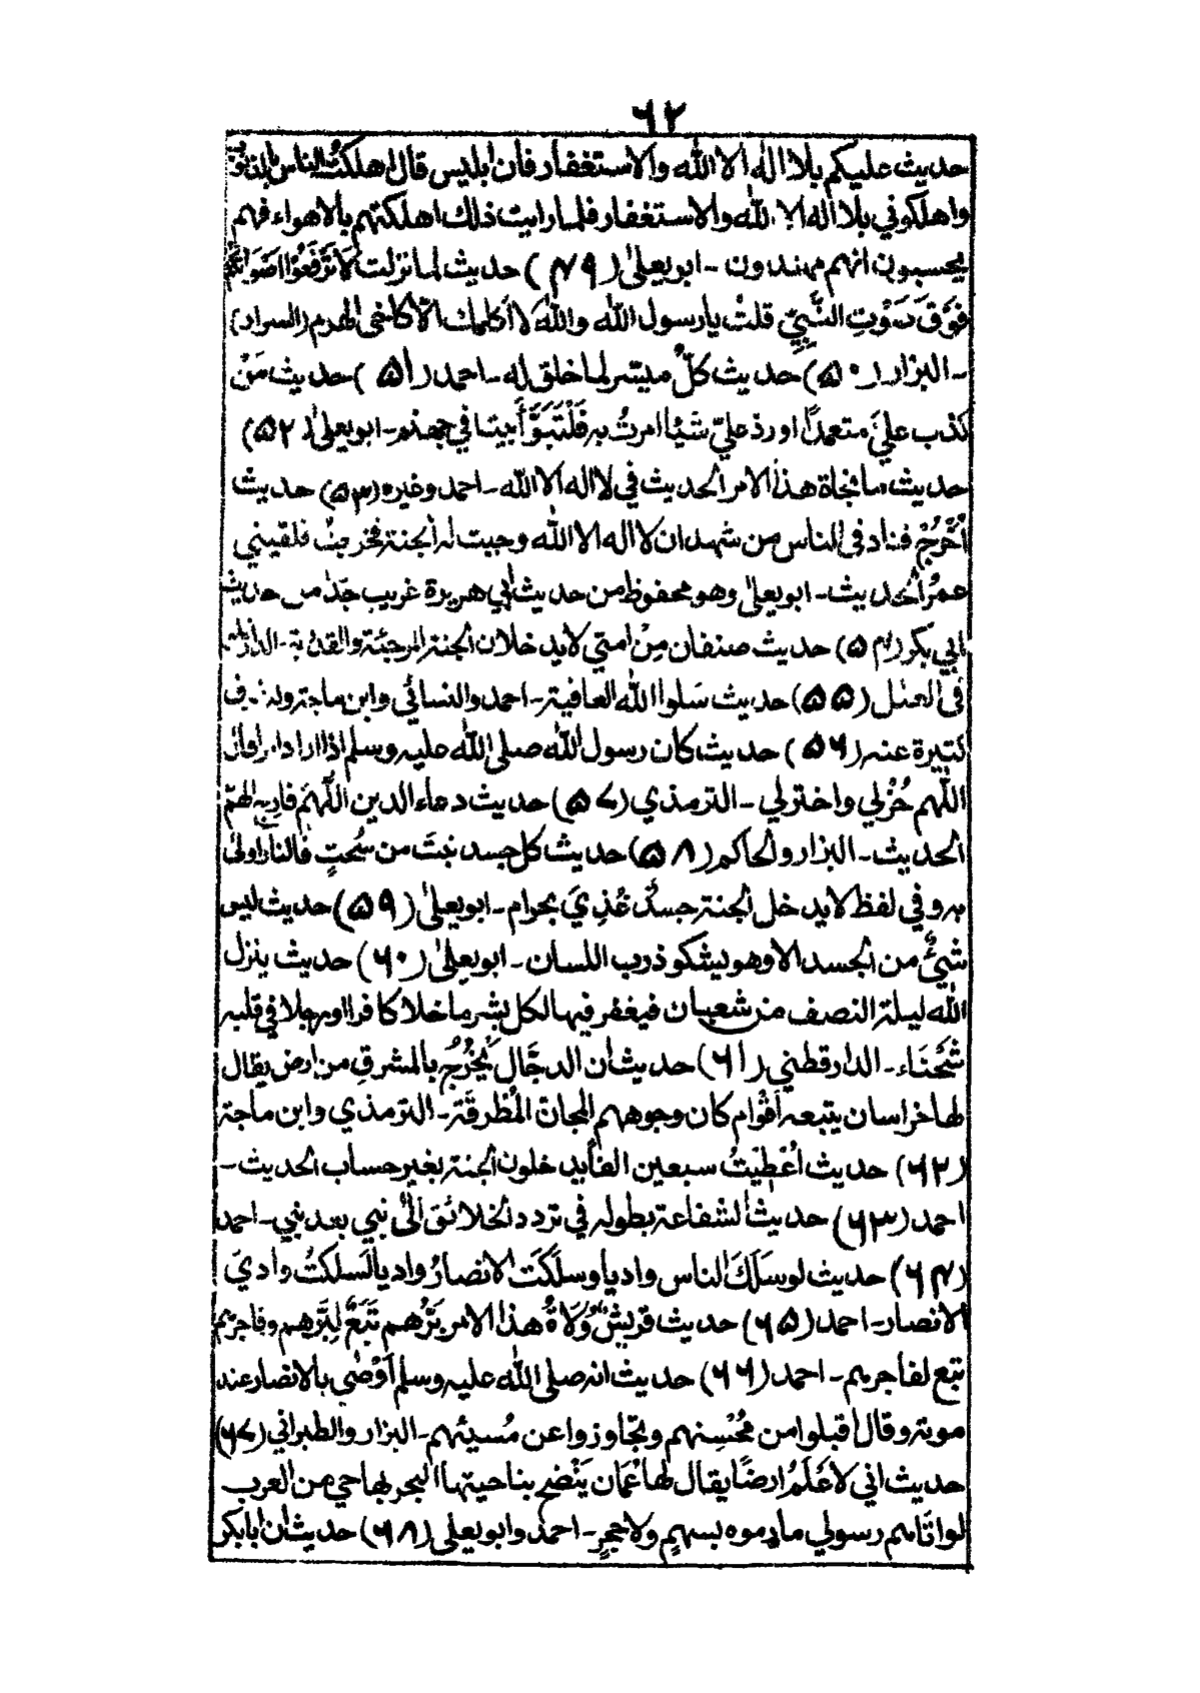 ۶۲
حديث عليكم بلا اله الا الله والاستغفار فان ابليس قال اهلكتُ الناس بالذنوب
واهلكوني بلا اله الا الله والاستغفار فلما رايت ذلك اهلكتهم بالاهواء فهم
يحسبون انهم مهتدون - ابو يعلىٰ (۴۹) حديث لما نزلت لَا تَرْفَعُوْا اَصْوَاتَكُمْ
فَوْقَ صَوْتِ النَّبِيِّ قلتُ يا رسول الله والله لا اُكلمك الّا كاخى الهرم (السرار)
- البزار (۵۰) حديث كلٌّ ميسّر لما خلق له - احمد (۵۱) حديث مَنْ
كذب عليَّ متعمدًا او ردّ عليّ شيئا امرتُ به فَلْتَبَوَّأ بيتا في جهنم - ابو يعلىٰ (۵۲)
حديث ما نجاة هذا الامر الحديث في لا اله الا الله - احمد وغيره (۵۳) حديث
اُخْرُجْ فناد في الناس من شهد ان لا اله الا الله وجبت له الجنة فخرجتُ فلقيني
عمرُ الحديث - ابو يعلىٰ وهو محفوظ من حديث ابي هريرة غريب جدّا من حديث
ابي بكر (۵۴) حديث صنفان مِنْ امتي لا يدخلان الجنة المرجئة والقدرية - الدارقطني
في العلل (۵۵) حديث سَلوا الله العافية - احمد والنسائي وابن ماجة وله طرق
كثيرة عنه (۵۶) حديث كان رسول الله صلى الله عليه وسلم اذا اراد امرا قال
اللّٰهم خُرْلي واخترلي - الترمذي (۵۷) حديث دعاء الدين اللّٰهُمّ فارج الهمّ
الحديث - البزار والحاكم (۵۸) حديث كل جسد نبتَ من سُحتٍ فالنار اولىٰ
به وفي لفظ لا يدخل الجنة جسدٌ غُذِيَ بحرام - ابو يعلىٰ (۵۹) حديث ليس
شيٌ من الجسد الا وهو يشكو ذرب اللسان - ابو يعلىٰ (۶۰) حديث ينزل
الله ليلة النصف من شعبان فيغفر فيها لكل بشر ما خلا كافرا او رجلا في قلبه
شَحْنَاء - الدارقطني (۶۱) حديث ان الدجّال يَخْرُجُ بالمشرقِ من ارض يقال
لها خراسان يتبعه اقوام كان وجوههم المجان المُطْرقَة - الترمذي وابن ماجة
(۶۲) حديث اُعْطِيْتُ سبعين الفا يدخلون الجنة بغير حساب الحديث -
احمد (۶۳) حديث الشفاعة بطوله في تردد الخلائق الىٰ نبي بعد نبي - احمد
(۶۴) حديث لو سَلَكَ الناس واديا وسلَكَت الانصارُ واديا لَسلكتُ وادي
الانصار - احمد (۶۵) حديث قريشٌ وُلَاةُ هذا الامر بَرُّهم تَبَعٌ لِبَرِّهم وفاجرهم
تبع لفاجرهم - احمد (۶۶) حديث انه صلى الله عليه وسلم اَوْصٰى بالانصار عند
موته وقال اقبلوا من مُحْسِنهم وتجاوزوا عن مُسيئهم - البزار والطبراني (۶۷)
حديث اني لاَعْلَمُ ارضًا يقال لها عُمَان يَنْضح بناحيتها البحر بها حي من العرب
لو اتَاهم رسولي ما رموه بسهمٍ ولا حجرٍ - احمد وابو يعلى (۶۸) حديث ان ابا بكر